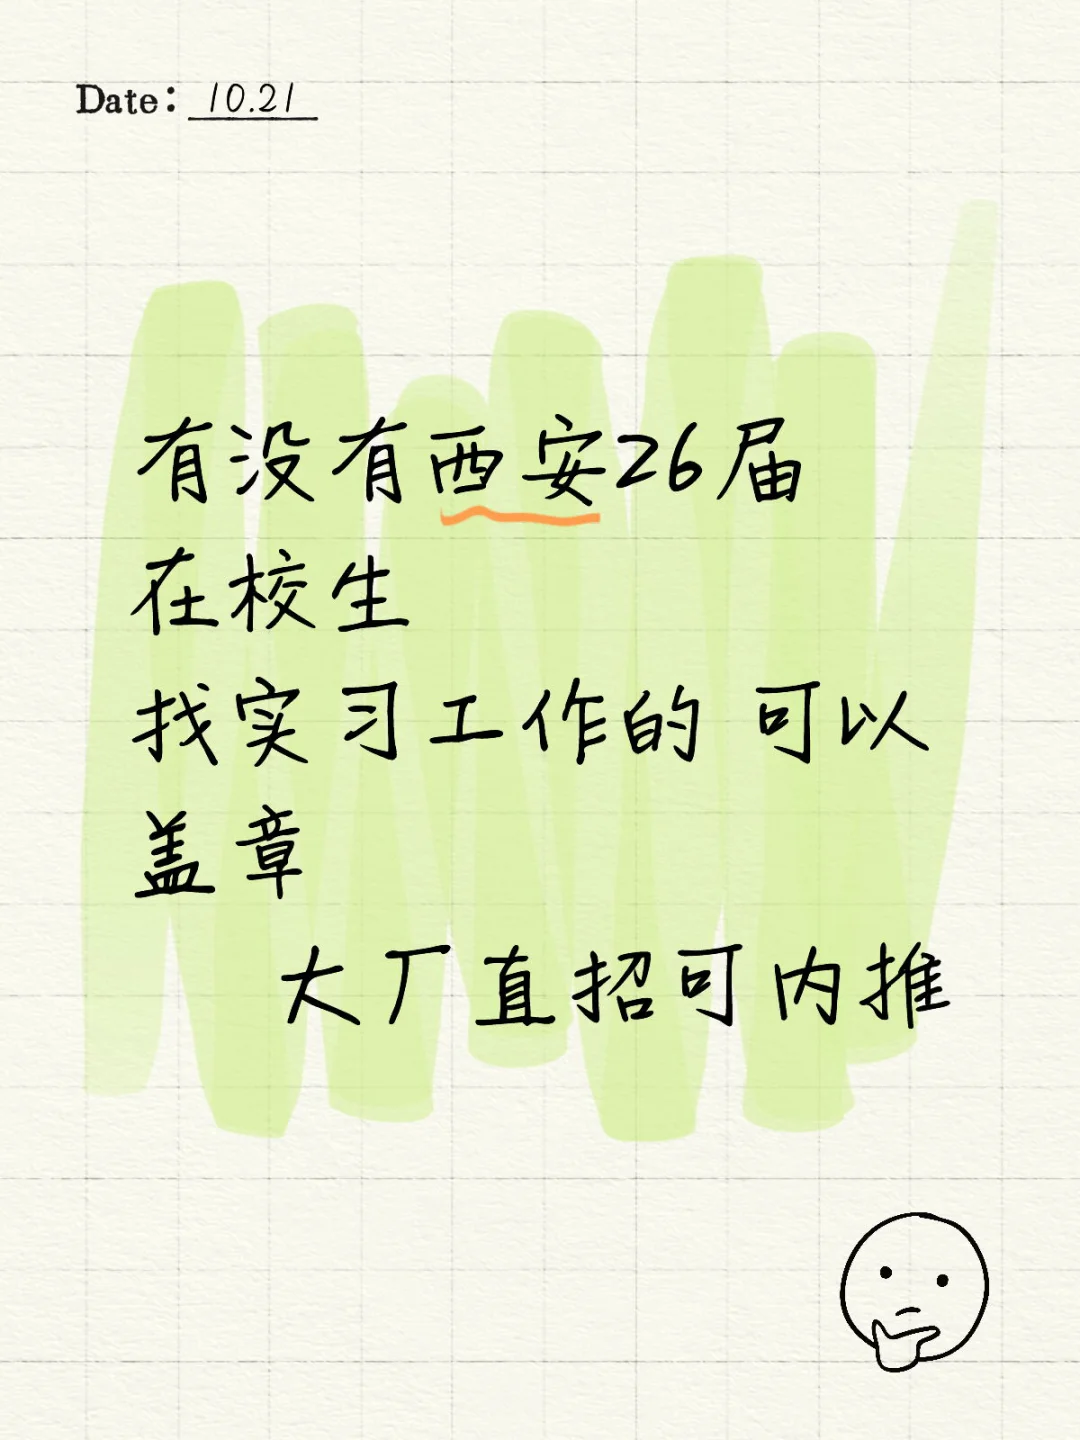 Date: 10.21
有没有西安26届
在校生
找实习工作的 可以
盖章
大厂直招可内推